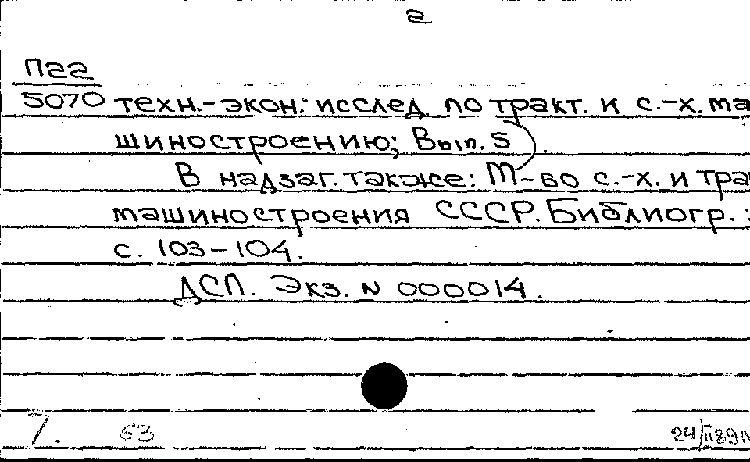 2
Пгг
5070 техн.-экон. исслед. по тракт. и с.-х. ма
шиностроению; Вып. 5).
В надзаг. также: М-во с.-х. и тра
машиностроения СССР. Библиогр.:
с. 103-104.
ДСП. Экз. N 000014.
7. 63 24/II89